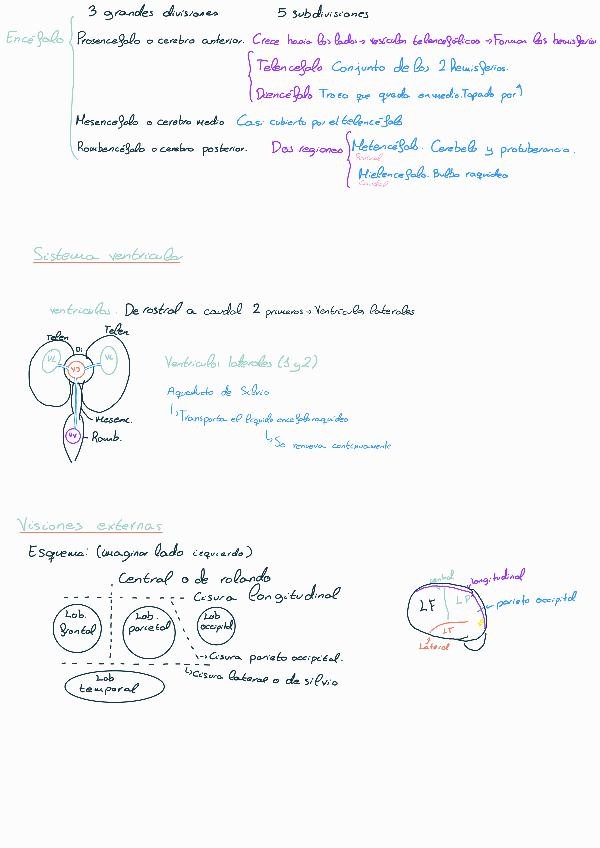 3 grandes divisiones 5 subdivisiones
Encéfalo Prosencéfalo o cerebro anterior. Crece hacia los lados → vesículas telencefálicas → Forman los hemisferios
Telencefalo Conjunto de los 2 hemisferios.
Diencéfalo Trozo que queda en medio. Tapado por ↑
Mesencefalo o cerebro medio Casi cubierto por el telencéfalo
Rombencéfalo o cerebro posterior. Dos regiones Metencéfalo. Cerebelo y protuberancia.
Rostral
Mielencefalo. Bulbo raquídeo
Caudal
Sistema ventricular
ventriculos. De rostral a caudal 2 primeros → Ventriculos laterales
Telen Di Telen
VL V3 VL
Ventriculos laterales (1 y 2)
Aqueducto de Silvio
↳ Transporta el liquido encefaloraquideo
↳ Se renueva continuamente
Mesenc.
V4 Romb.
Visiones externas
Esquema: (imaginar lado izquierdo)
Central o de rolando
Cisura longitudinal
Lob. frontal
Lob. parietal
Lob occipital
→ Cisura parieto occipital.
↳ Cisura lateral o de silvio
Lob temporal
central longitudinal
LF LP parieto occipital
LT
Lateral